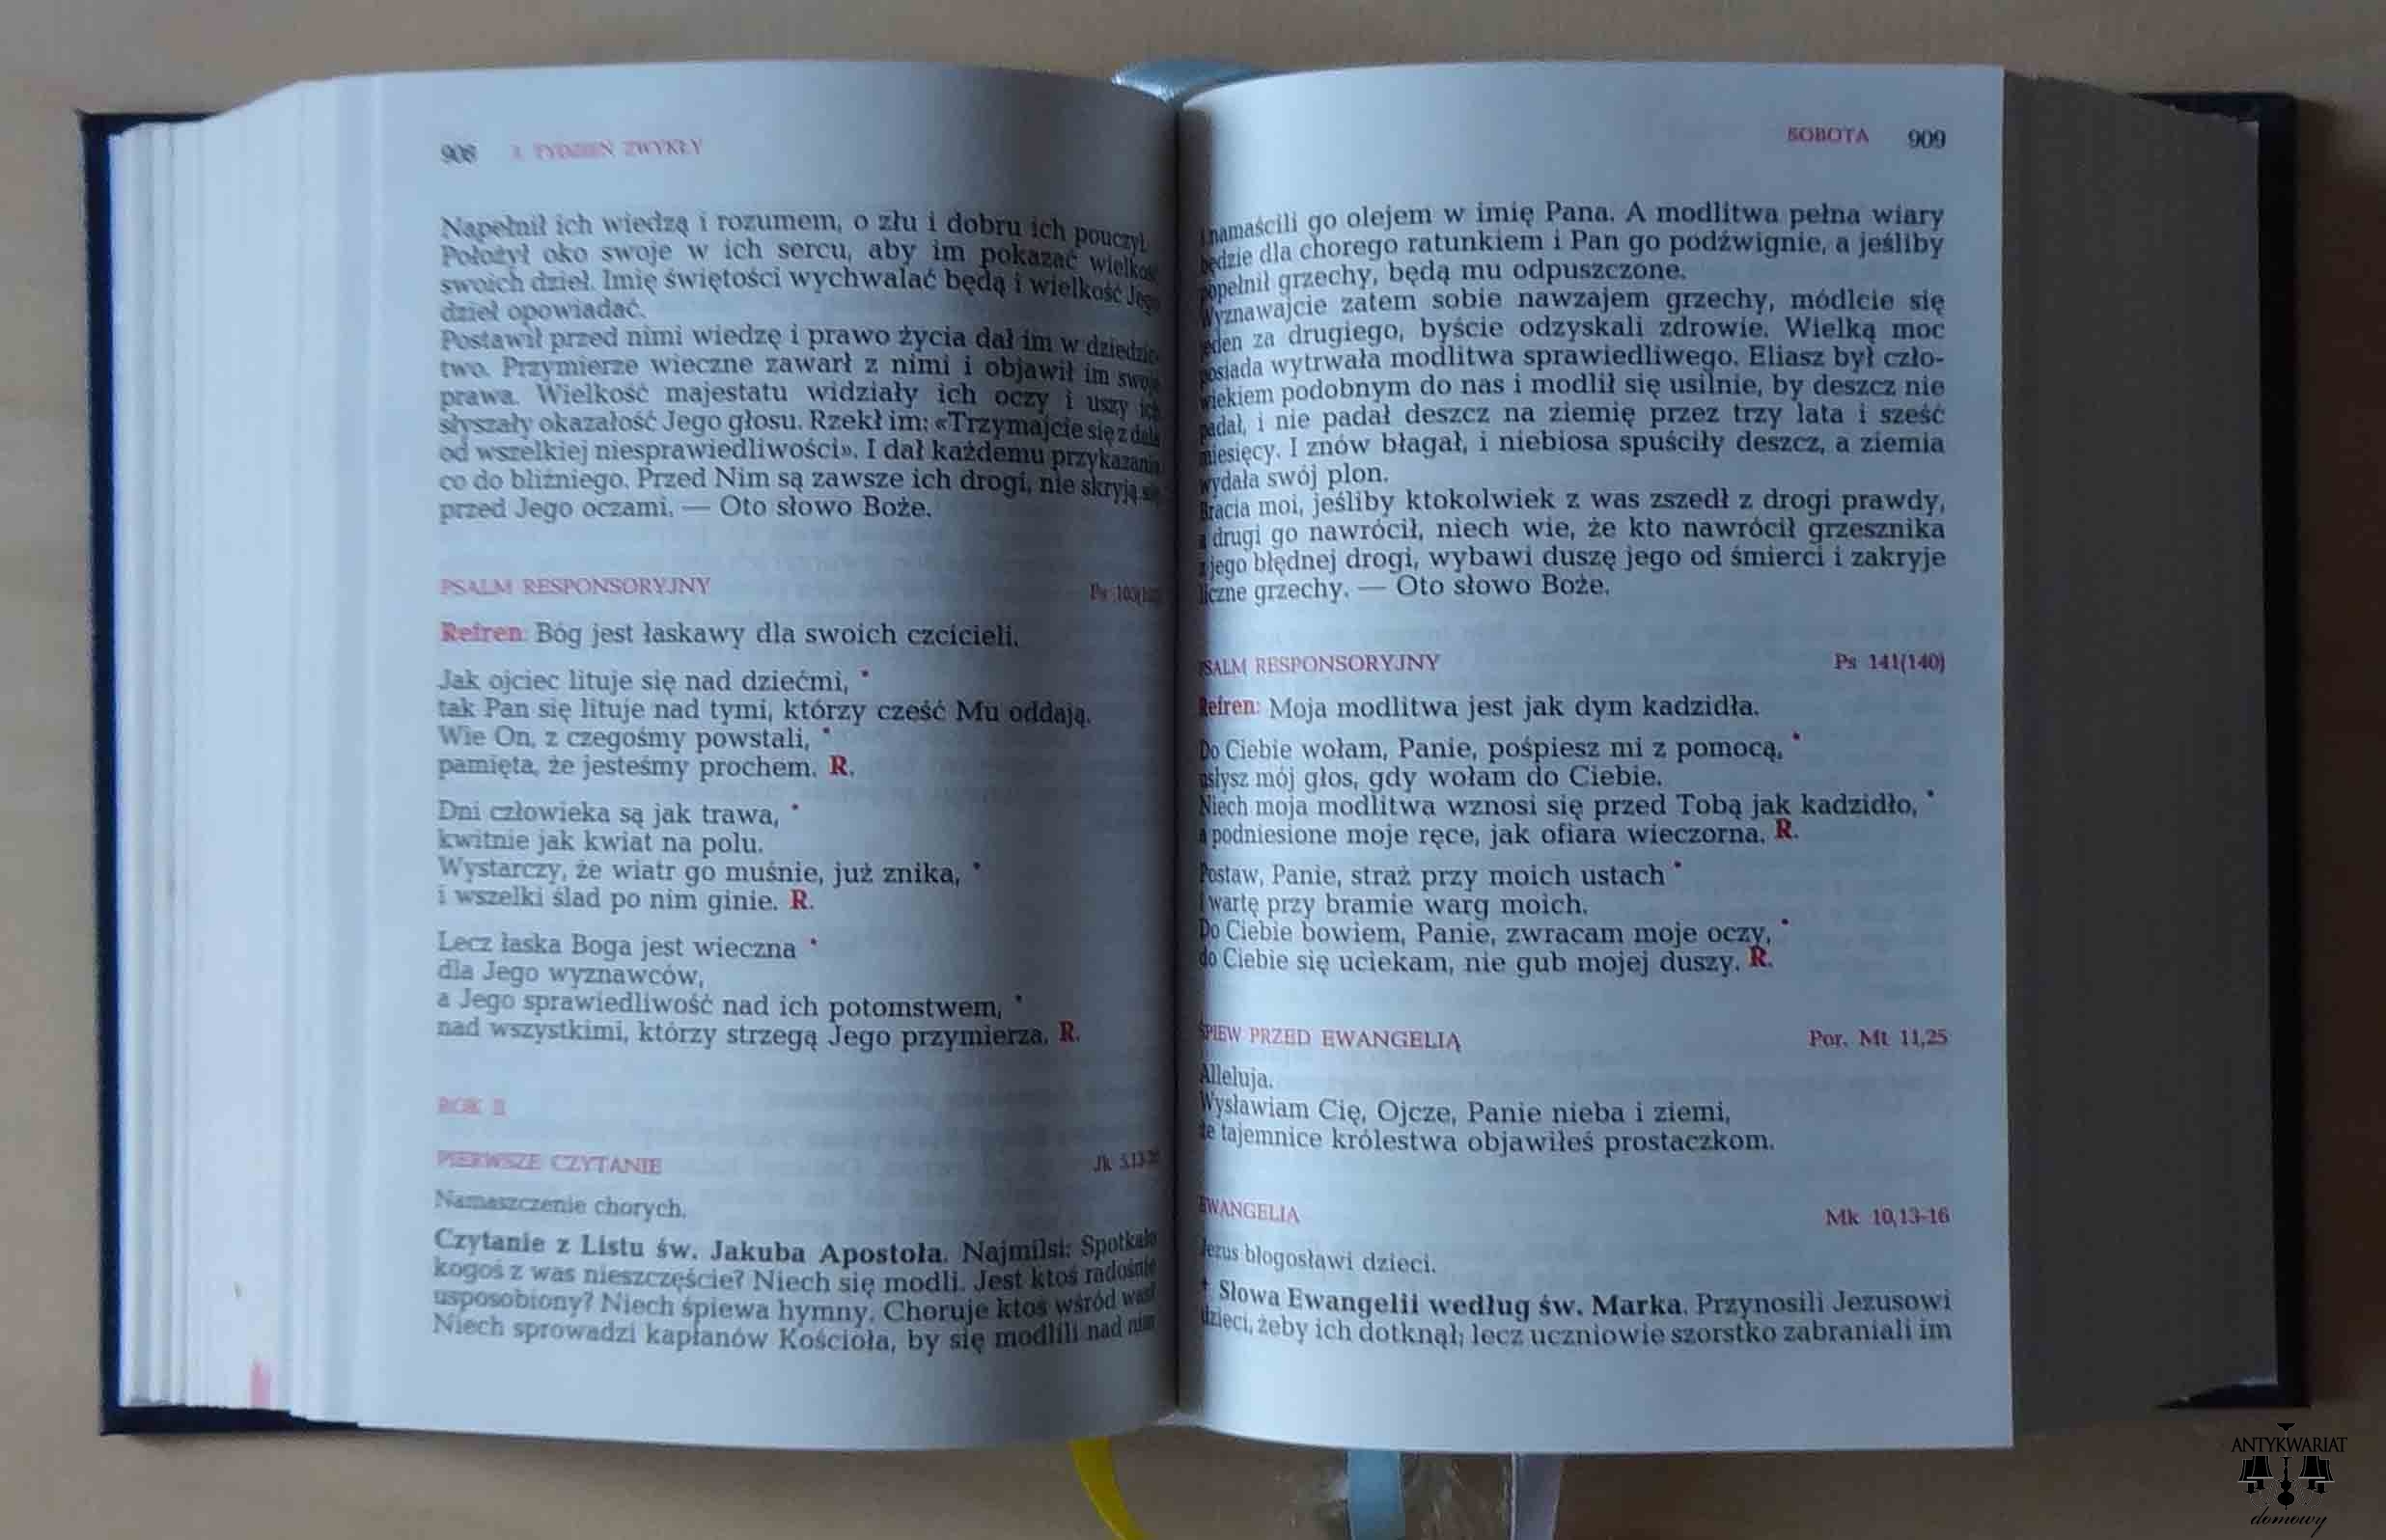 908 TYDZIEŃ ZWYKŁY
Napełnił ich wiedzą i rozumem, o złu i dobru ich pouczył.
Położył oko swoje w ich sercu, aby im pokazać wielkość
swoich dzieł. Imię świętości wychwalać będą i wielkość Jego
dzieł opowiadać.
Postawił przed nimi wiedzę i prawo życia dał im w dziedzic-
two. Przymierze wieczne zawarł z nimi i objawił im swoje
prawa. Wielkość majestatu widziały ich oczy i uszy ich
słyszały okazałość Jego głosu. Rzekł im: «Trzymajcie się z dala
od wszelkiej niesprawiedliwości». I dał każdemu przykazania
co do bliźniego. Przed Nim są zawsze ich drogi, nie skryją się
przed Jego oczami. — Oto słowo Boże.
PSALM RESPONSORYJNY Ps
Refren: Bóg jest łaskawy dla swoich czcicieli.
Jak ojciec lituje się nad dziećmi, *
tak Pan się lituje nad tymi, którzy cześć Mu oddają.
Wie On, z czegośmy powstali, *
pamięta, że jesteśmy prochem. R.
Dni człowieka są jak trawa, *
kwitnie jak kwiat na polu.
Wystarczy, że wiatr go muśnie, już znika, *
i wszelki ślad po nim ginie. R.
Lecz łaska Boga jest wieczna *
dla Jego wyznawców,
a Jego sprawiedliwość nad ich potomstwem, *
nad wszystkimi, którzy strzegą Jego przymierza. R.
ROK II
PIERWSZE CZYTANIE Jk 5,13-20
Namaszczenie chorych.
Czytanie z Listu św. Jakuba Apostoła. Najmilsi: Spotkało
kogoś z was nieszczęście? Niech się modli. Jest ktoś radośnie
usposobiony? Niech śpiewa hymny. Choruje ktoś wśród was?
Niech sprowadzi kapłanów Kościoła, by się modlili nad nim
SOBOTA 909
i namaścili go olejem w imię Pana. A modlitwa pełna wiary
będzie dla chorego ratunkiem i Pan go podźwignie, a jeśliby
popełnił grzechy, będą mu odpuszczone.
Wyznawajcie zatem sobie nawzajem grzechy, módlcie się
jeden za drugiego, byście odzyskali zdrowie. Wielką moc
posiada wytrwała modlitwa sprawiedliwego. Eliasz był czło-
wiekiem podobnym do nas i modlił się usilnie, by deszcz nie
padał, i nie padał deszcz na ziemię przez trzy lata i sześć
miesięcy. I znów błagał, i niebiosa spuściły deszcz, a ziemia
wydała swój plon.
Bracia moi, jeśliby ktokolwiek z was zszedł z drogi prawdy,
a drugi go nawrócił, niech wie, że kto nawrócił grzesznika
z jego błędnej drogi, wybawi duszę jego od śmierci i zakryje
liczne grzechy. — Oto słowo Boże.
PSALM RESPONSORYJNY Ps 141(140)
Refren: Moja modlitwa jest jak dym kadzidła.
Do Ciebie wołam, Panie, pośpiesz mi z pomocą, *
usłysz mój głos, gdy wołam do Ciebie.
Niech moja modlitwa wznosi się przed Tobą jak kadzidło, *
a podniesione moje ręce, jak ofiara wieczorna. R.
Postaw, Panie, straż przy moich ustach *
i wartę przy bramie warg moich.
Do Ciebie bowiem, Panie, zwracam moje oczy, *
do Ciebie się uciekam, nie gub mojej duszy. R.
ŚPIEW PRZED EWANGELIĄ Por. Mt 11,25
Alleluja.
Wysławiam Cię, Ojcze, Panie nieba i ziemi,
że tajemnice królestwa objawiłeś prostaczkom.
EWANGELIA Mk 10,13-16
Jezus błogosławi dzieci.
† Słowa Ewangelii według św. Marka. Przynosili Jezusowi
dzieci, żeby ich dotknął; lecz uczniowie szorstko zabraniali im
ANTYKWARIAT
domowy